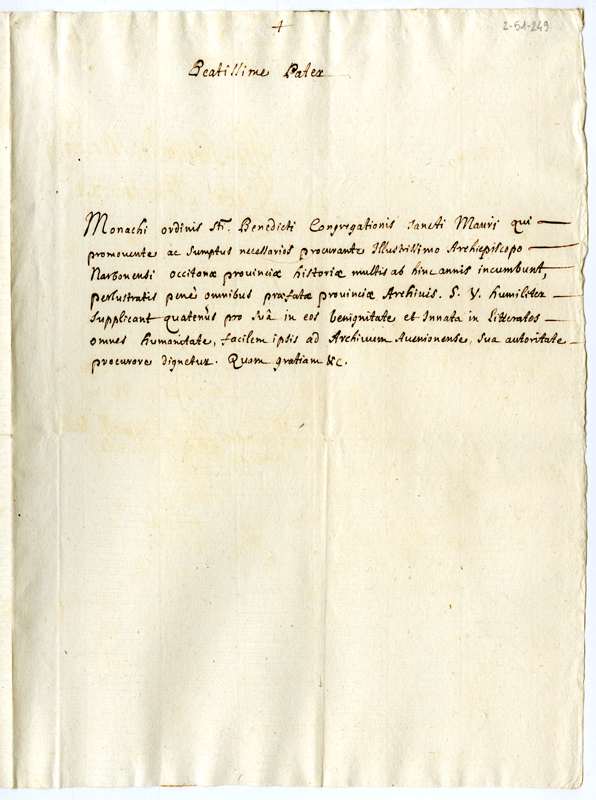 4
2-51-249
Beatissime Pater
Monachi ordinis Sti. Benedicti Congregationis Sancti Mauri qui
promovente ac Sumptus necessarios procurante Illustrissimo Archiepiscopo
Narbonensi occitanæ provinciæ historiæ multis ab hinc annis incumbunt,
perlustratis penè omnibus præfatæ provinciæ Archivis. S. V. humiliter
Supplicant quatenùs pro suâ in eos benignitate et Innata in Litteratos
omnes humanitate, facilem ipsis ad Archivum Avenionense, sua autoritate
procurare dignetur. Quam gratiam &c.